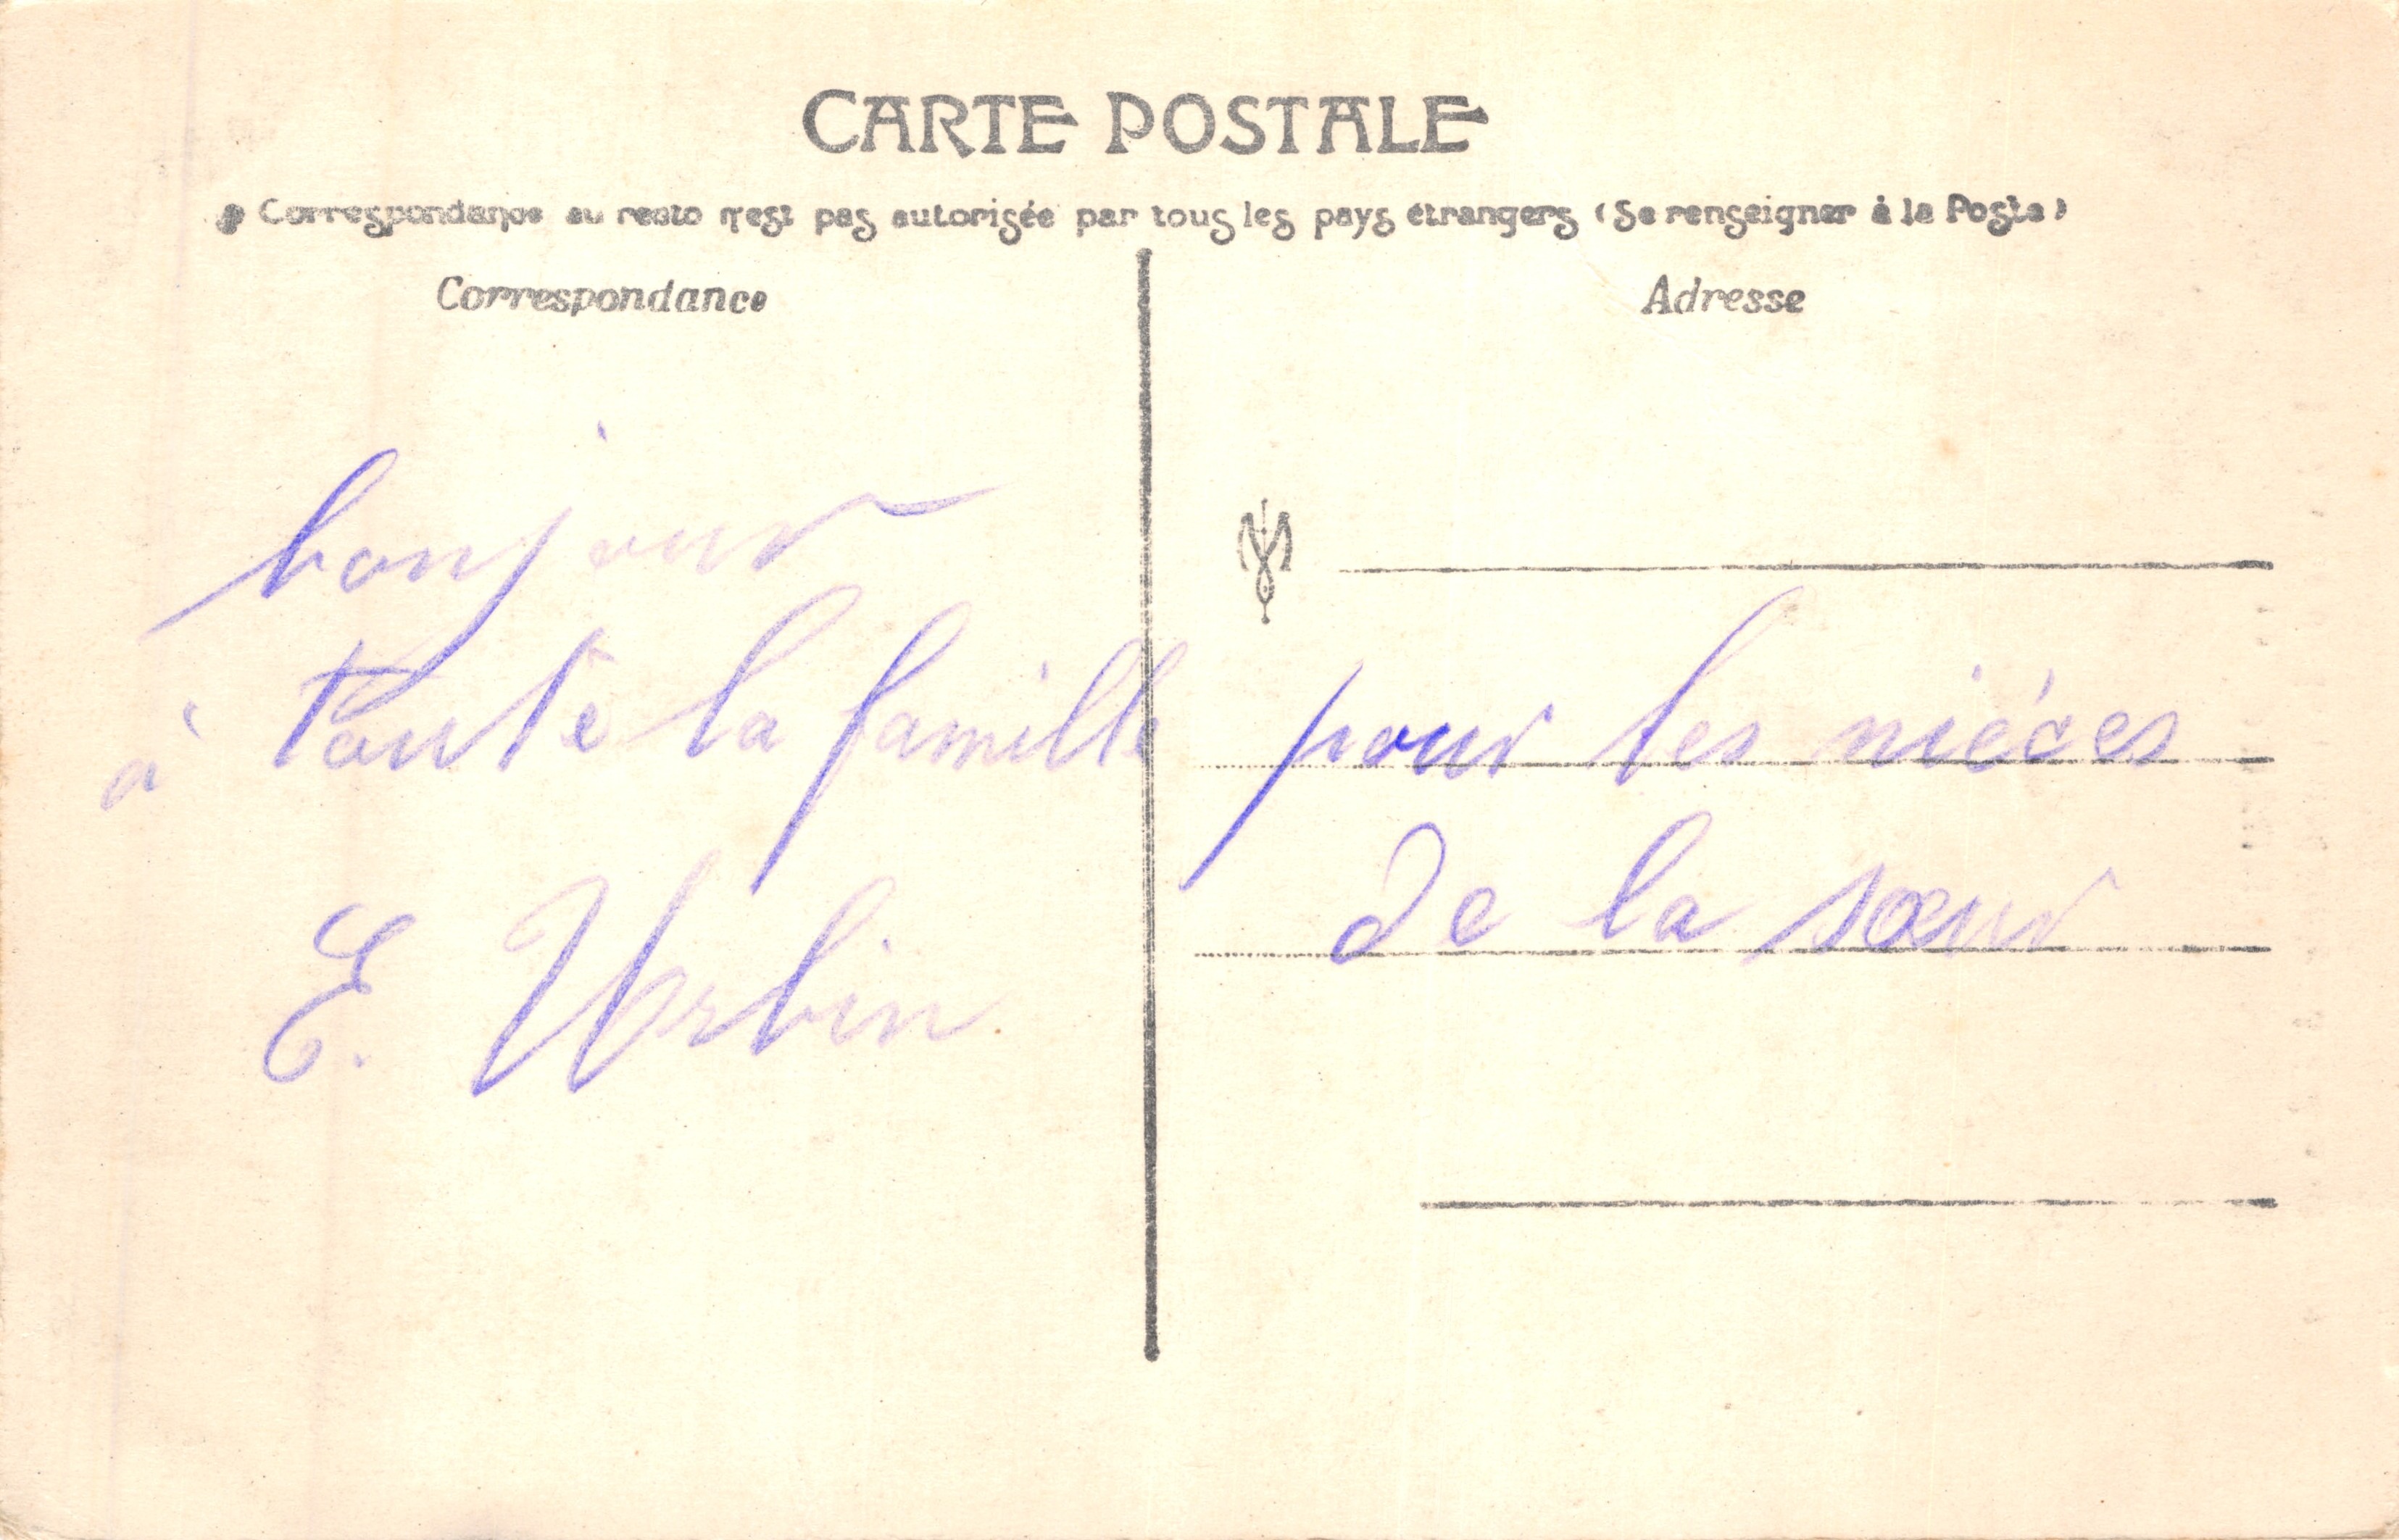 CARTE POSTALE
Correspondance au resto n'est pas autorisée par tous les pays étrangers (Se renseigner à la Poste)
Correspondance
Adresse
bonjour
à toute la famille
E. Urbin
pour les niéces
de la sœur